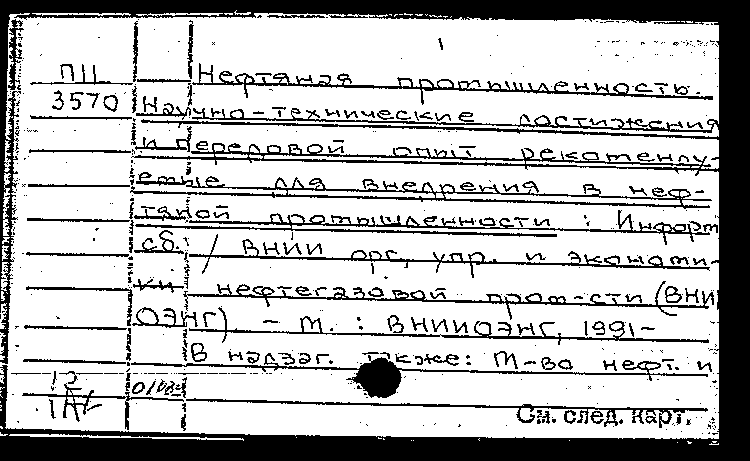 1
ПII Нефтяная промышленность.
3570 Научно-технические достижения
и передовой опыт, рекоменду-
емые для внедрения в неф-
тяной промышленности : Информ
сб. / ВНИИ орг., упр. и экономи-
ки нефтегазовой пром-сти (ВНИИ
ОЭНГ) - М. : ВНИИОЭНГ, 1991-
В надзаг. также: М-во нефт. и
12
См. след. карт.